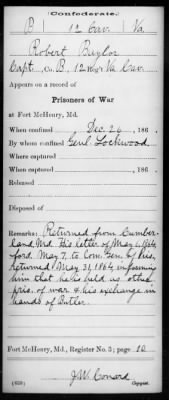 Confederate.
B 12 Cav. Va.
Robert Baylor
Capt., Co. B, 12 Reg't Va. Cav.
Appears on a record
of
Prisoners of War
at Fort McHenry, Md.
When confined Dec. 26, 186 .
By whom confined Genl. Lockwood
Where captured
When captured , 186 .
Released
Disposed of
Remarks: Returned from Cumber-
land, Md. His letter of May 6, 1864,
ford. May 7, to Com. Gen. of Pris.
returned May 31, 1864, informing
him that he is held as other
pris. of war & his exchange in
hands of Butler.
Fort McHenry, Md., Register No. 3; page 10
J.W. Conard
(639) Copyist.